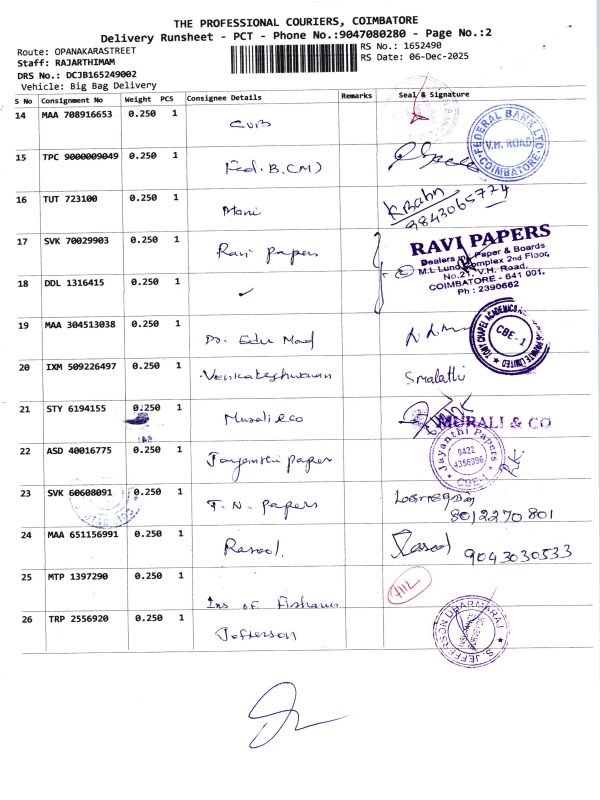 THE PROFESSIONAL COURIERS, COIMBATORE
Delivery Runsheet - PCT - Phone No.:9047080280 - Page No.:2
Route: OPANAKARASTREET
RS No.: 1652490
Staff: RAJARTHIMAM
RS Date: 06-Dec-2025
DRS No.: DCJB165249002
Vehicle: Big Bag Delivery
S No Consignment No Weight PCS Consignee Details Remarks Seal & Signature
14 MAA 708916653 0.250 1 CUB
15 TPC 9000009049 0.250 1 Fed. B. (M)
FEDERAL BANK LTD.
V.H. ROAD
COIMBATORE
16 TUT 723100 0.250 1 Mani
9843065774
17 SVK 70029903 0.250 1 Ravi papers
RAVI PAPERS
Dealers in Paper & Boards
M.L Lund Complex 2nd Floor,
No.21, V.H. Road,
COIMBATORE - 641 001.
Ph : 2390662
18 DDL 1316415 0.250 1 ✓
19 MAA 304513038 0.250 1
CBE-1
20 IXM 509226497 0.250 1 Venkateshwaran Smalathi
21 STY 6194155 0.250 1 Murali & co
MURALI & CO
22 ASD 40016775 0.250 1 Jayanthi paper
Jayanthi Papers
0422
4356096
CBE-1
23 SVK 60608091 0.250 1 T. N. Papers
8012270801
24 MAA 651156991 0.250 1 Rasool. Rasool 9043030533
25 MTP 1397290 0.250 1 Ins of Fisharies
26 TRP 2556920 0.250 1 Jefferson
S. JEFFERSON DHARMARAJ